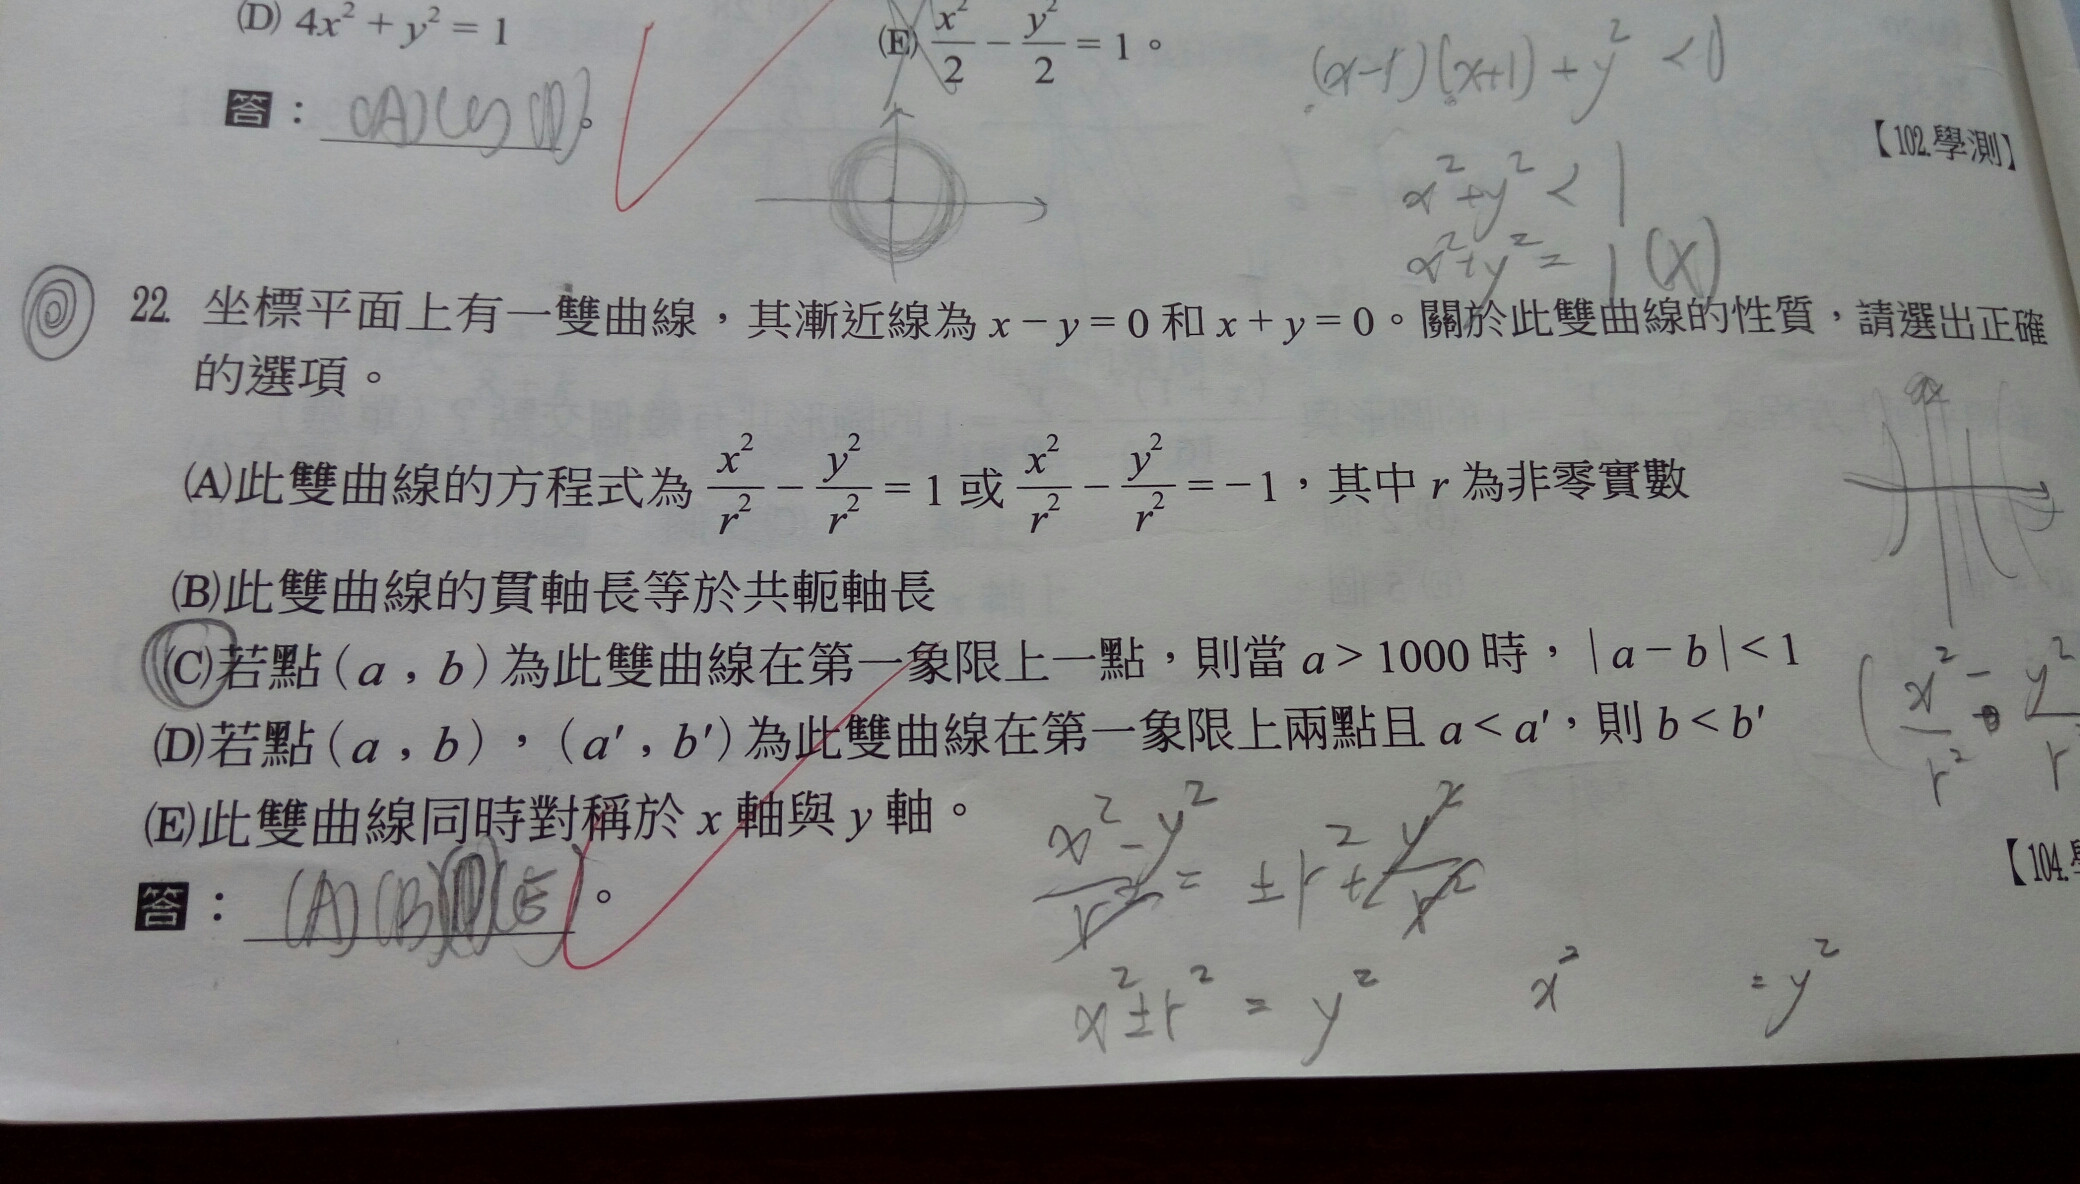 (D) 4x² + y² = 1
(E) x²/2 − y²/2 = 1。
(x-1)(x+1) + y² < 0
答：(A)(C)(D)。
【102.學測】
x²+y² < 1
x²+y² = 1 (x)
22. 坐標平面上有一雙曲線，其漸近線為 x − y = 0 和 x + y = 0。關於此雙曲線的性質，請選出正確
的選項。
(A)此雙曲線的方程式為 x²/r² − y²/r² = 1 或 x²/r² − y²/r² = −1，其中 r 為非零實數
(B)此雙曲線的貫軸長等於共軛軸長
(C)若點(a，b)為此雙曲線在第一象限上一點，則當 a > 1000 時，|a − b| < 1
(D)若點(a，b)，(a′，b′)為此雙曲線在第一象限上兩點且 a < a′，則 b < b′
(E)此雙曲線同時對稱於 x 軸與 y 軸。
【104.學
答：(A)(B)(D)(E)。
x² - y² / r² = ±r² + y² / r²
x² ± r² = y²
x² = y²